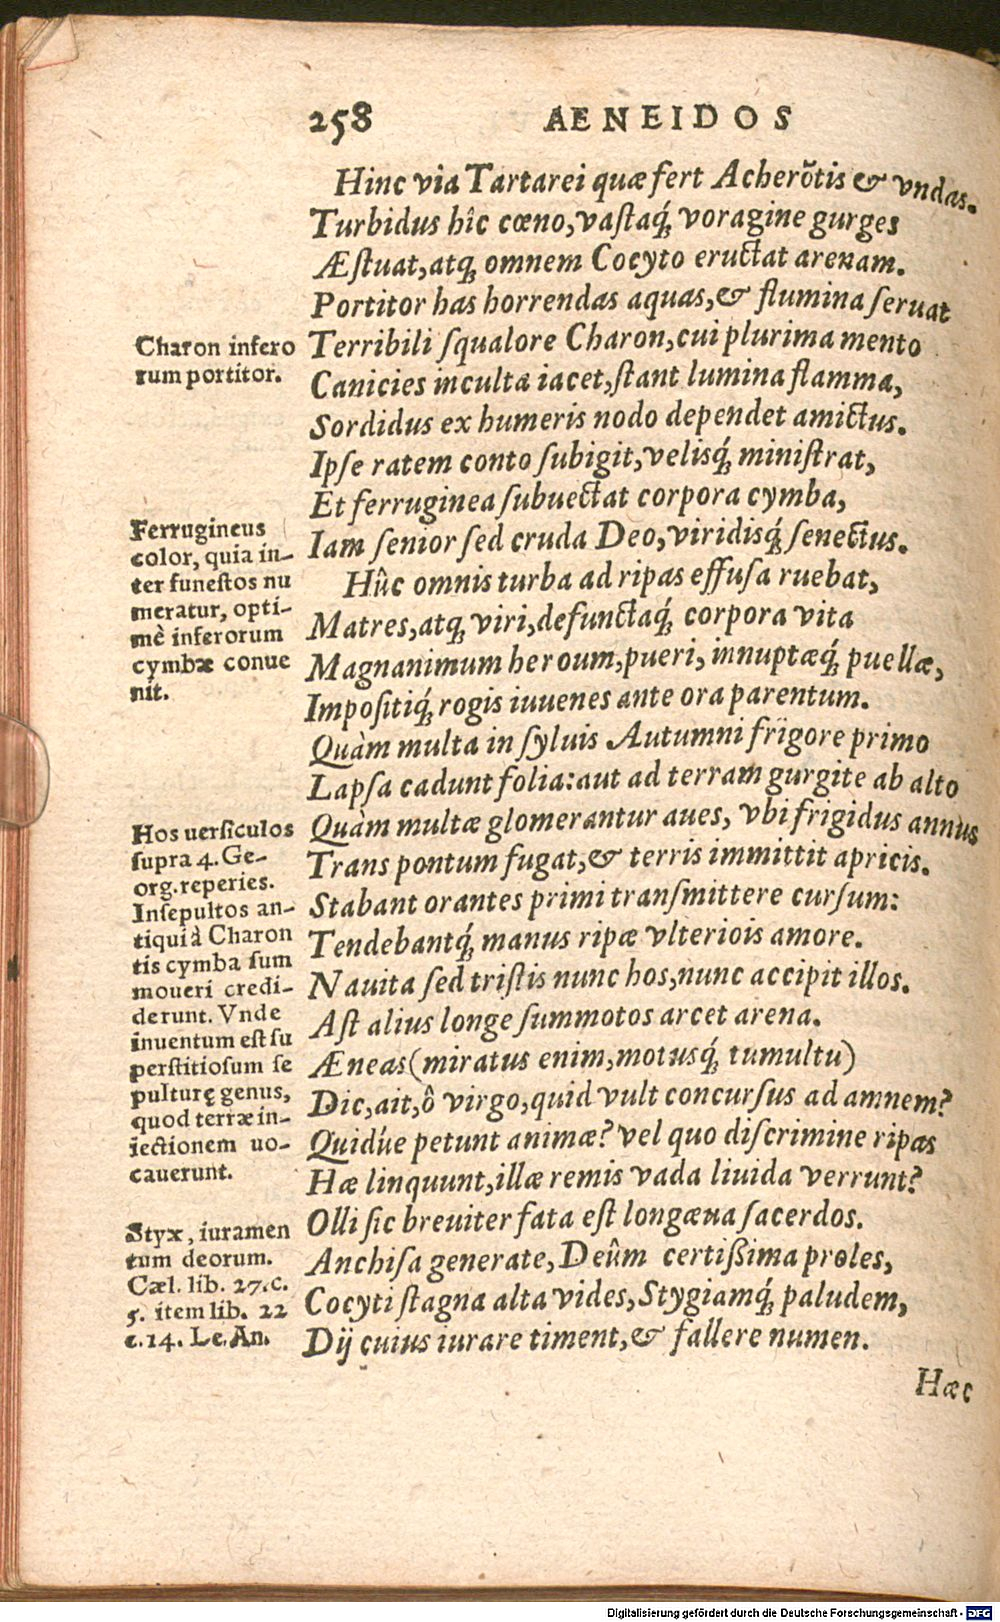 258 AENEIDOS
Hinc via Tartarei quæ fert Acherõtis & vndas.
Turbidus hîc cœno, vastaq́; voragine gurges
Æstuat, atq; omnem Cocyto eructat arenam.
Portitor has horrendas aquas, & flumina seruat
Terribili squalore Charon, cui plurima mento
Canicies inculta iacet, stant lumina flamma,
Sordidus ex humeris nodo dependet amictus.
Ipse ratem conto subigit, velisq́; ministrat,
Et ferruginea subuectat corpora cymba,
Iam senior sed cruda Deo, viridisq́; senectus.
Hûc omnis turba ad ripas effusa ruebat,
Matres, atq; viri, defunctaq́; corpora vita
Magnanimum heroum, pueri, innuptæq́; puellæ,
Impositiq́; rogis iuuenes ante ora parentum.
Quàm multa in syluis Autumni frigore primo
Lapsa cadunt folia: aut ad terram gurgite ab alto
Quàm multæ glomerantur aues, vbi frigidus annus
Trans pontum fugat, & terris immittit apricis.
Stabant orantes primi transmittere cursum:
Tendebantq́; manus ripæ vlteriois amore.
Nauita sed tristis nunc hos, nunc accipit illos.
Ast alius longe summotos arcet arena.
Æneas (miratus enim, motusq́; tumultu)
Dic, ait, ô virgo, quid vult concursus ad amnem?
Quid́ue petunt animæ? vel quo discrimine ripas
Hæ linquunt, illæ remis vada liuida verrunt?
Olli sic breuiter fata est longæua sacerdos.
Anchisa generate, Deûm certißima proles,
Cocyti stagna alta vides, Stygiamq́; paludem,
Dij cuius iurare timent, & fallere numen.
Hæc
Charon infero
rum portitor.
Ferrugineus
color, quia in-
ter funestos nu
meratur, opti-
mè inferorum
cymbæ conue
nit.
Hos uersiculos
supra 4. Ge-
org. reperies.
Insepultos an-
tiqui à Charon
tis cymba sum
moueri credi-
derunt. Vnde
inuentum est su
perstitiosum se
pulturę genus,
quod terræ in-
iectionem uo-
cauerunt.
Styx, iuramen
tum deorum.
Cæl. lib. 27. c.
5. item lib. 22
c. 14. Le. An.
Digitalisierung gefördert durch die Deutsche Forschungsgemeinschaft - DFG